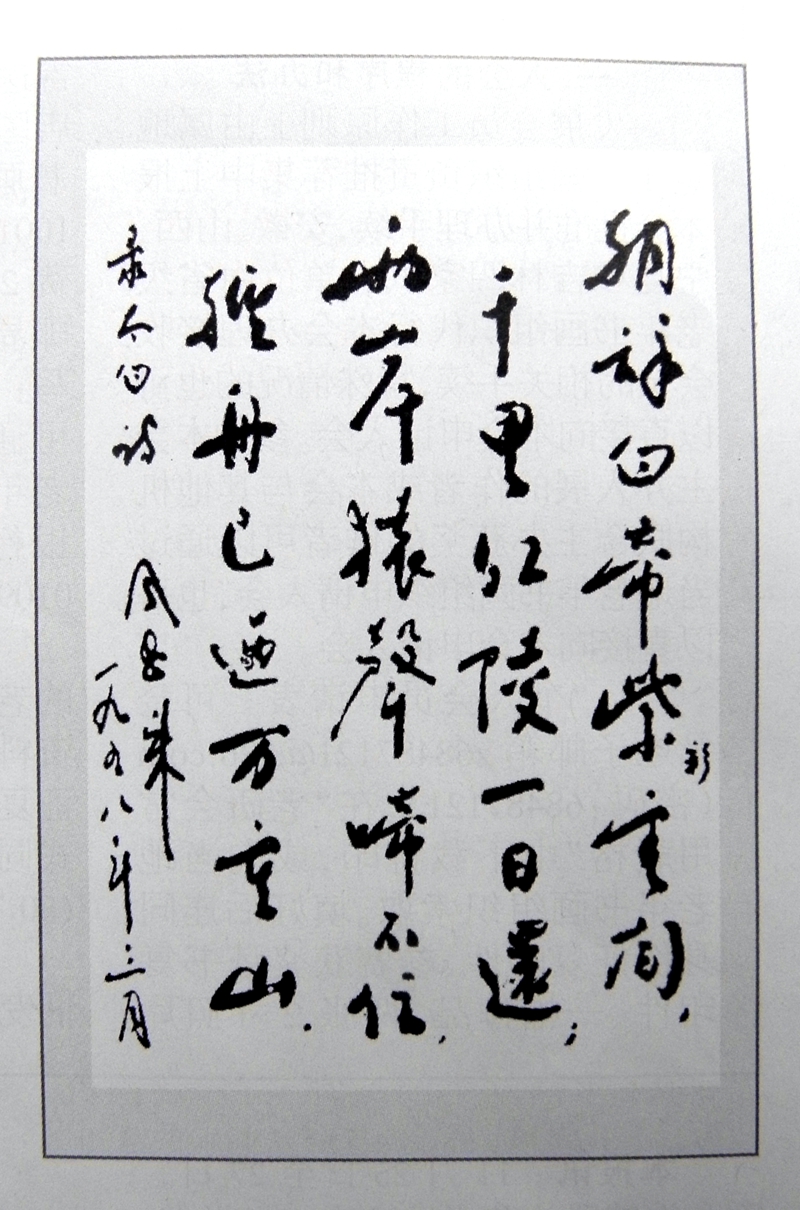 朝辞白帝紫彩雲间，
千里江陵一日還；
両岸猿聲啼不住，
輕舟已过万重山．
录太白诗
周恩来
一九五八．年．三月